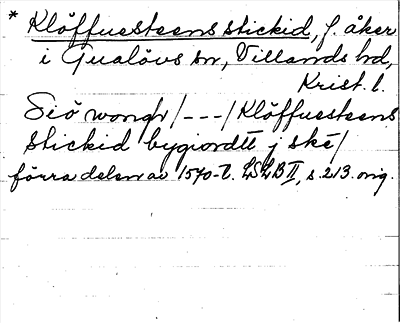 * Klöffuesteens stickid, f. åker
i Gualövs sn, Villands hd,
Krist. l.
Siö wongr /---/ Klöffuesteens
stickid bygiordtt j skě/
förra delen av 1570-t. LSLB II, s. 213. orig.